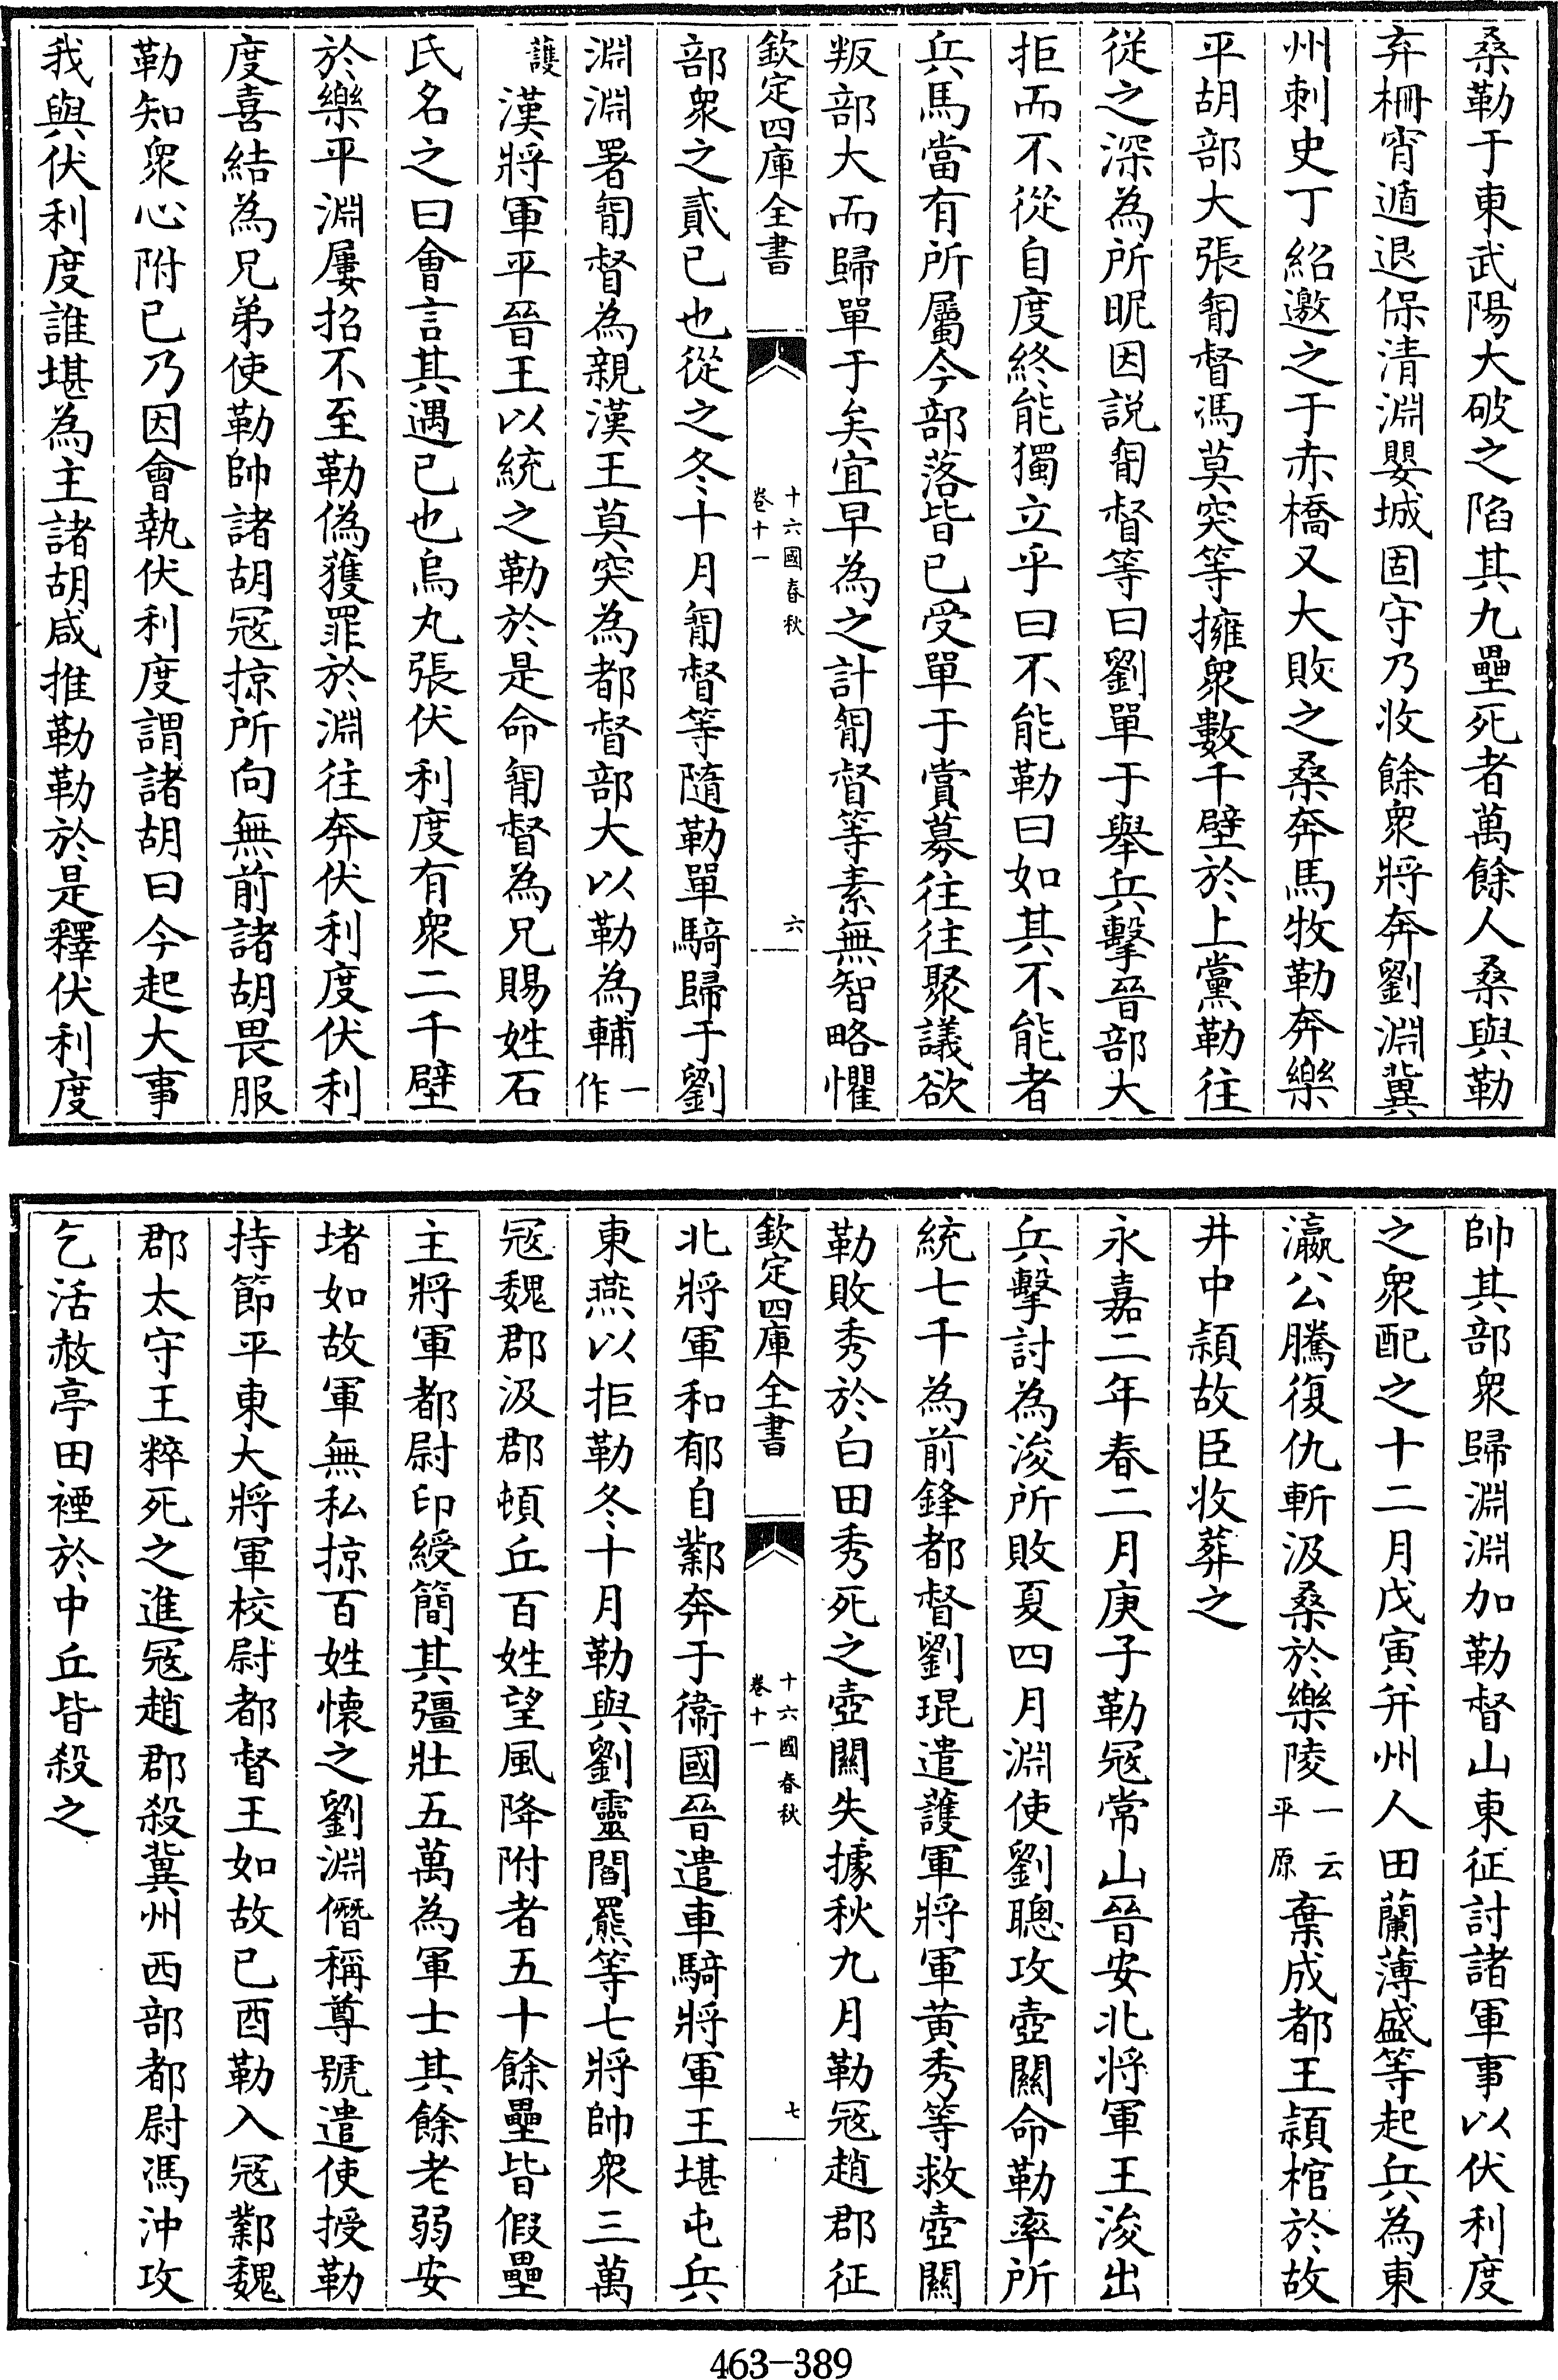 桑勒于東武陽大破之陷其九壘死者萬餘人桑與勒
弃柵宵遁退保清淵嬰城固守乃收餘衆將奔劉淵冀
州刺史丁紹邀之于赤橋又大敗之桑奔馬牧勒奔樂
平胡部大張㔨督馮莫突等擁衆數千壁於上黨勒往
從之深為所昵因説㔨督等曰劉單于舉兵擊晉部大
拒而不從自度終能獨立乎曰不能勒曰如其不能者
兵馬當有所屬今部落皆已受單于賞募往往聚議欲
叛部大而歸單于矣宜早為之計㔨督等素無智略懼
欽定四庫全書
十六國春秋
卷十一
六
部衆之貳已也從之冬十月㔨督等隨勒單騎歸于劉
淵淵署㔨督為親漢王莫突為都督部大以勒為輔一作
護漢將軍平晉王以統之勒於是命㔨督為兄賜姓石
氏名之曰會言其遇已也烏丸張伏利度有衆二千壁
於樂平淵屢招不至勒偽獲罪於淵往奔伏利度伏利
度喜結為兄弟使勒帥諸胡冦掠所向無前諸胡畏服
勒知衆心附已乃因會執伏利度謂諸胡曰今起大事
我與伏利度誰堪為主諸胡咸推勒勒於是釋伏利度
帥其部衆歸淵淵加勒督山東征討諸軍事以伏利度
之衆配之十二月戊寅并州人田蘭薄盛等起兵為東
瀛公騰復仇斬汲桑於樂陵一云平原棄成都王頴棺於故
井中頴故臣收葬之
永嘉二年春二月庚子勒冦常山晉安北將軍王浚出
兵擊討為浚所敗夏四月淵使劉聰攻壺關命勒率所
統七千為前鋒都督劉琨遣護軍將軍黄秀等救壺關
勒敗秀於白田秀死之壺關失據秋九月勒冦趙郡征
欽定四庫全書
十六國春秋
卷十一
七
北將軍和郁自鄴奔于衞國晉遣車騎將軍王堪屯兵
東燕以拒勒冬十月勒與劉靈閻羆等七將帥衆三萬
冦魏郡汲郡頓丘百姓望風降附者五十餘壘皆假壘
主將軍都尉印綬簡其彊壯五萬為軍士其餘老弱安
堵如故軍無私掠百姓懐之劉淵僭稱尊號遣使授勒
持節平東大將軍校尉都督王如故已酉勒入冦鄴魏
郡太守王粹死之進冦趙郡殺冀州西部都尉馮沖攻
乞活赦亭田禋於中丘皆殺之
463-389